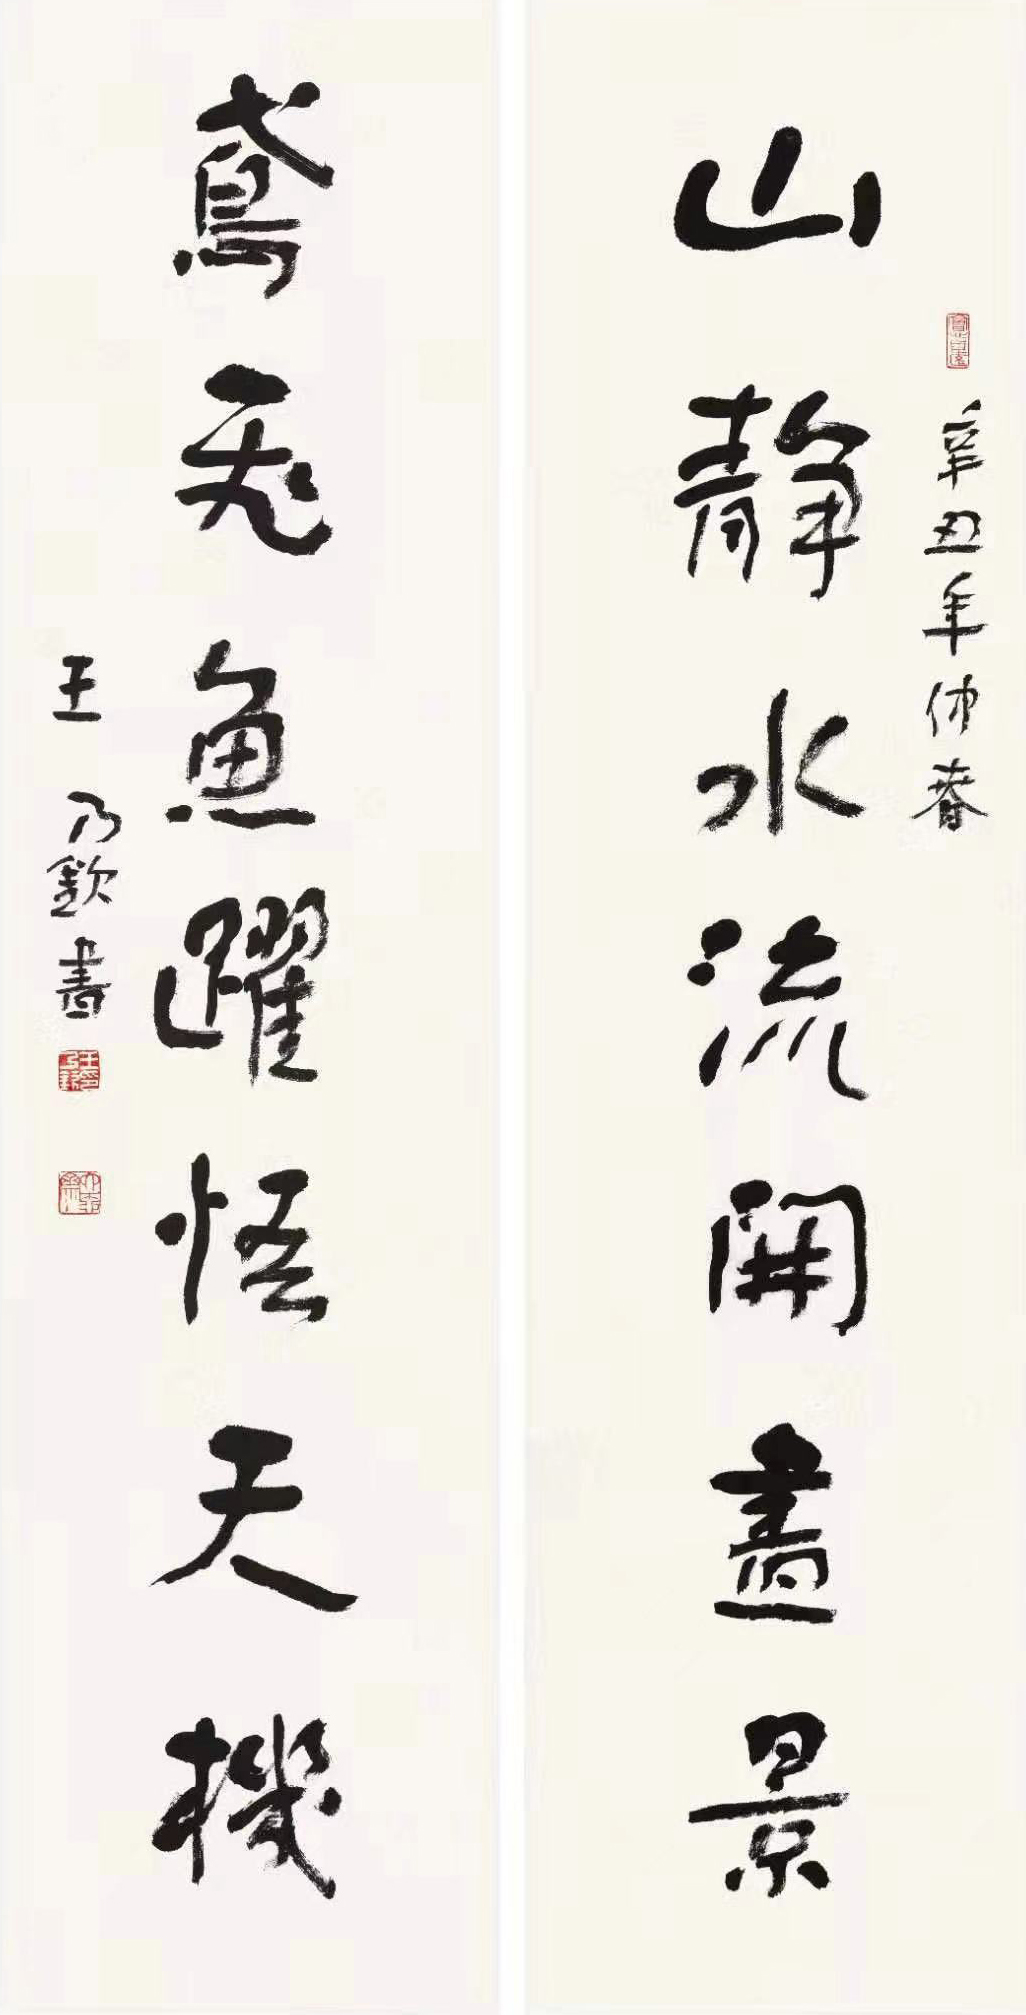 辛丑年仲春
山靜水流開畫景
鳶飛魚躍悟天機
王乃欽書